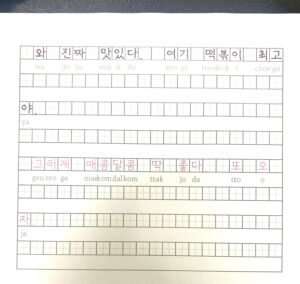 와 진짜 맛있다. 여기 떡볶이 최고
wa jin jja mat it da yeo gi tteokbok i choe go
야.
ya
그러게 매콤달콤 딱 좋다 또 오
geu reo ge maekomdalkom ttak jo da tto o
자
ja